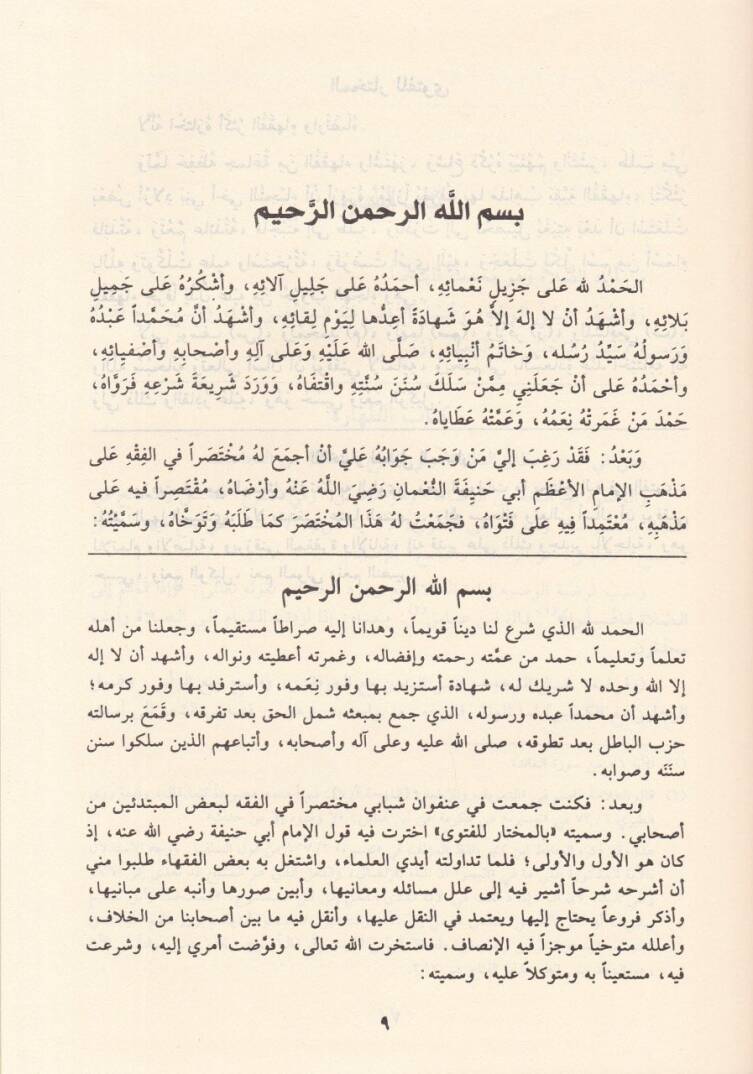 بسم اللَّه الرحمن الرَّحيم
الحَمْدُ لله عَلى جَزِيلِ نَعْمائِهِ، أحمَدُهُ عَلى جَلِيلِ آلائِهِ، وأشْكُرُهُ عَلى جَمِيلِ
بَلائِهِ، وأشْهَدُ أنْ لا إلهَ إلاَّ هُوَ شَهادَةً أعِدُّها لِيَوْمِ لِقائِهِ، وأشْهَدُ أنَّ مُحَمَّداً عَبْدُهُ
وَرَسولُهُ سَيِّدُ رُسُله، وَخاتَمُ أنْبِيائِهِ، صَلَّى الله عَلَيْهِ وَعَلى آلِهِ وأصْحابِهِ وأصْفِيائِهِ،
وأحْمَدُهُ عَلى أنْ جَعَلَنِي مِمَّنْ سَلَكَ سُنَنَ سُنَّتِهِ واقْتَفَاهُ، وَوَرَدَ شَرِيعَةَ شَرْعِهِ فَرَوَّاهُ،
حَمْدَ مَنْ غَمَرتْهُ نِعَمُهُ، وَعَمَّتْهُ عَطَاياهُ.
وَبَعْدُ: فَقَدْ رَغِبَ إليَّ مَنْ وَجَبَ جَوَابُهُ عَليَّ أنْ أجمَعَ لهُ مُخْتَصَراً في الفِقْهِ عَلى
مَذْهَبِ الإمامِ الأعْظَمِ أبي حَنِيفَةَ النُّعْمانِ رَضِيَ اللَّهُ عَنْهُ وأرْضَاهُ، مُقْتَصِراً فيه عَلى
مَذْهَبِهِ، مُعْتَمِداً فِيهِ عَلى فَتْوَاهُ، فَجَمَعْتُ لهُ هَذَا المُخْتَصَرَ كمَا طَلَبَهُ وَتَوَخَّاهُ، وسَمَّيْتُهُ:
بسم الله الرحمن الرحيم
الحمد لله الذي شرع لنا ديناً قويماً، وهدانا إليه صراطاً مستقيماً، وجعلنا من أهله
تعلماً وتعليماً، حمد من عمَّته رحمته وإفضاله، وغمرته أعطيته ونواله، وأشهد أن لا إله
إلا الله وحده لا شريك له، شهادة أستزيد بها وفور نِعَمه، وأسترفد بها وفور كرمه؛
وأشهد أن محمداً عبده ورسوله، الذي جمع بمبعثه شمل الحق بعد تفرقه، وقَمَعَ برسالته
حزب الباطل بعد تطوقه، صلى الله عليه وعلى آله وأصحابه، وأتباعهم الذين سلكوا سنن
سنَنَه وصوابه.
وبعد: فكنت جمعت في عنفوان شبابي مختصراً في الفقه لبعض المبتدئين من
أصحابي. وسميته «بالمختار للفتوى» اخترت فيه قول الإمام أبي حنيفة رضي الله عنه، إذ
كان هو الأول والأولى؛ فلما تداولته أيدي العلماء، واشتغل به بعض الفقهاء طلبوا مني
أن أشرحه شرحاً أشير فيه إلى علل مسائله ومعانيها، وأبين صورها وأنبه على مبانيها،
وأذكر فروعاً يحتاج إليها ويعتمد في النقل عليها، وأنقل فيه ما بين أصحابنا من الخلاف،
وأعلله متوخياً موجزاً فيه الإنصاف. فاستخرت الله تعالى، وفوَّضت أمري إليه، وشرعت
فيه، مستعيناً به ومتوكلاً عليه، وسميته:
٩